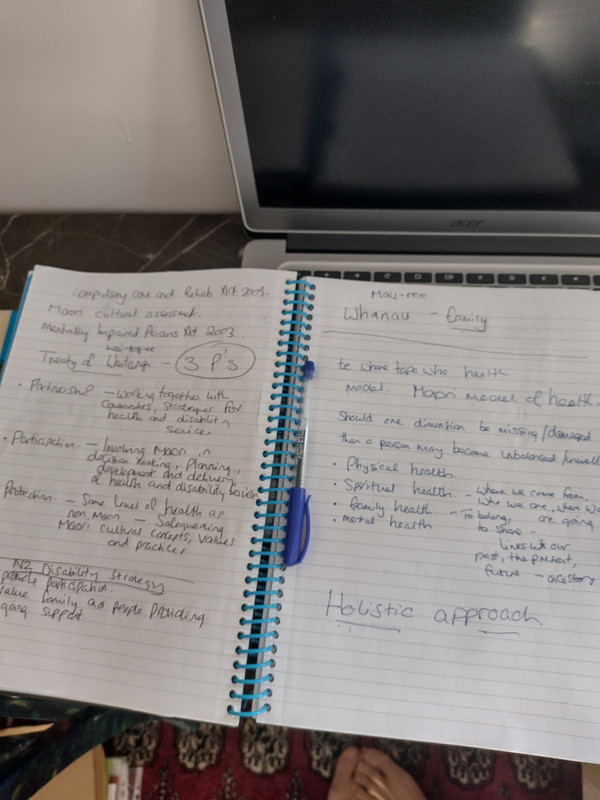 acer
Compulsory care and Rehab Act 2003.
Maori cultural assessment.
Mentally Impaired Persons Act 2003.
Treaty of - 3 P's
• Partnership - working together with
communities, strategies for
health and disability
services
• Participation - Involving Maori in
decision making, planning,
development and delivery
of health and disability
Protection - Same level of health as
non Maori - Safeguarding
Maori cultural concepts, values
and practices
NZ Disability Strategy
participation.
value family, and people providing
support.
Mau-ree
Whanau - family
te whare tapa wha health
model. Maori model of health.
Should one dimension be missing/damaged
than a person may become unbalanced/unwell
• Physical health.
• Spiritual health - where we come from,
who we are, when we
• family health - To belong, are going
• mental health to share -
links with our
past, the present,
future - ancestory
Holistic approach